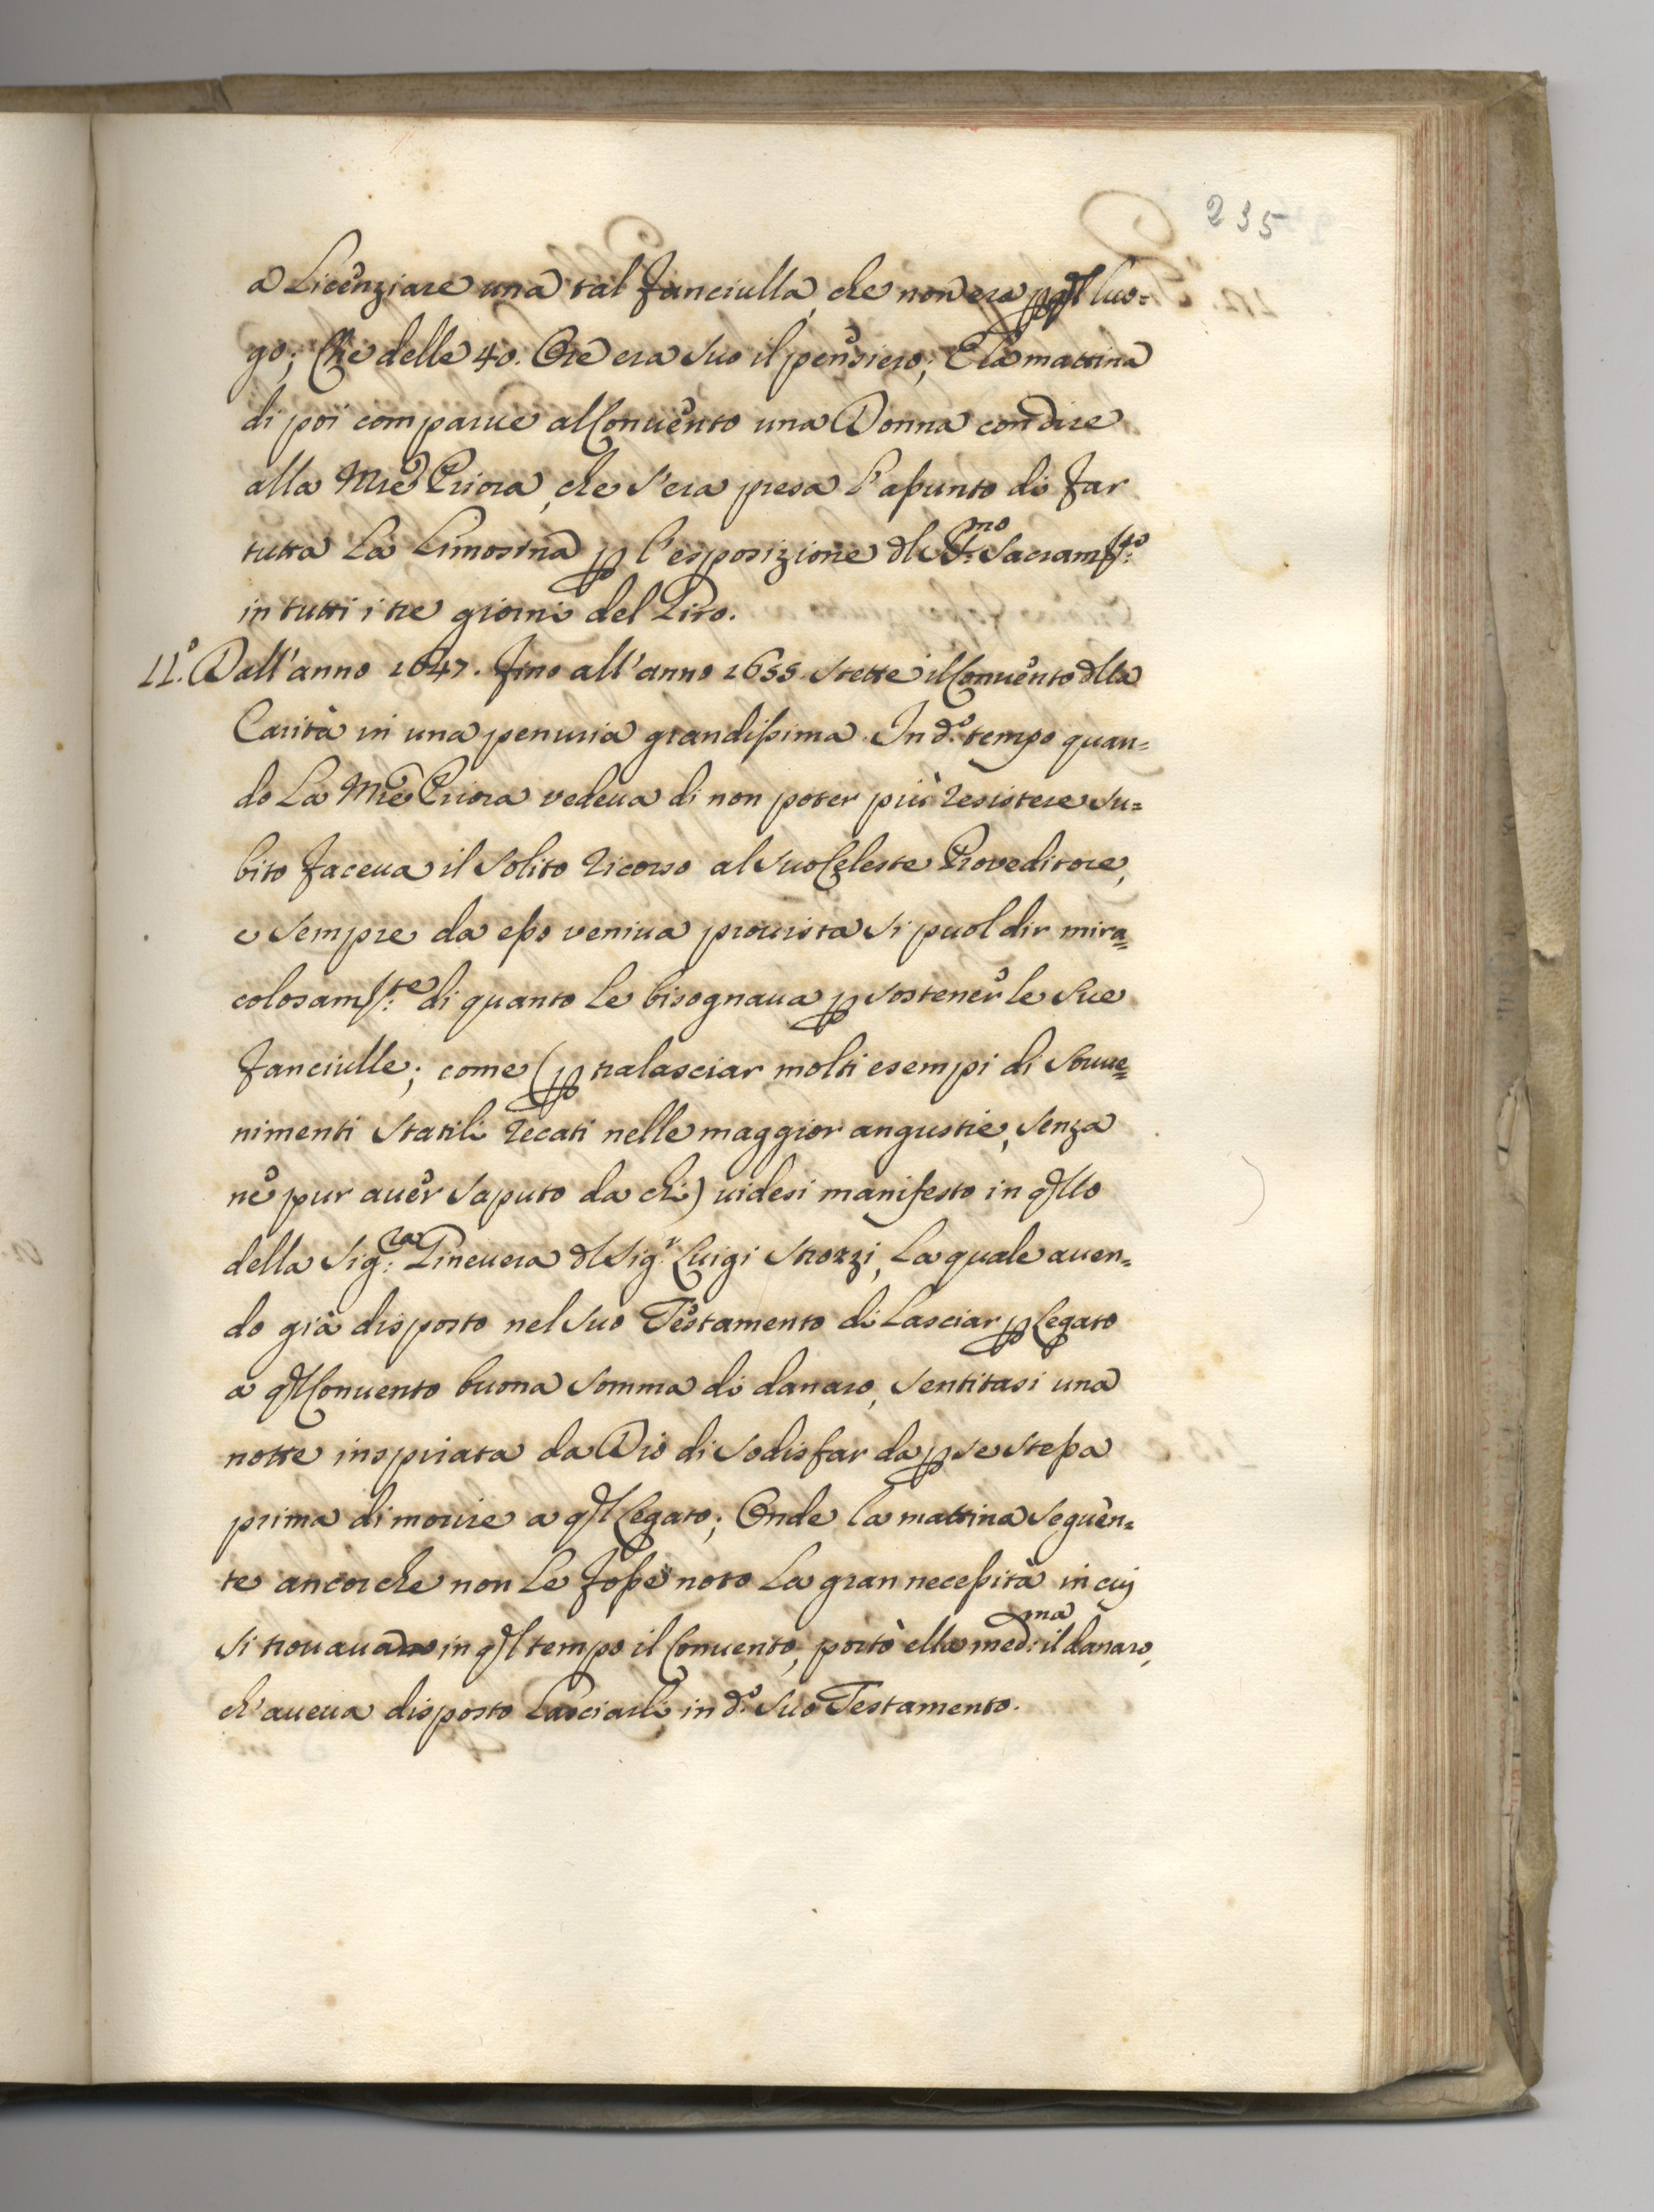 235
a Licenziare una tal fanciulla, che non era p q̃l luo=
go; Che delle 40. Ore era suo il pensiero; E la mattina
di poi comparue al Conuento una Donna con dire
alla Mre Priora, che s'era presa l'aßunto di far
tutta La Limosina p l'esposizione dl S.mo Sacram.to
in tutti i tre giorni del Giro.
11.° Dall'anno 1647. fino all'anno 1655. stette il Conuento dlla
Carità in una penuria grandißima. In d.° tempo quan=
do La Mre Priora vedeua di non poter più resistere su=
bito faceua il solito ricorso al suo Celeste Proveditore,
e sempre da eßo veniua prouista si puol dir mira=
colosam.te di quanto le bisognaua p sostener le sue
fanciulle; come (p tralasciar molti esempi di souue=
nimenti statili recati nelle maggior angustie, senza
ne pur auer saputo da chi) uidesi manifesto in q̃llo
della Sig.ra Gineuera dl Sig.r Luigi Strozzi, La quale auen=
do già disposto nel suo Testamento di Lasciar p Legato
a q̃l Conuento buona somma di danaro, sentitasi una
notte inspirata da Dio di sodisfar da p se steßa
prima di morire a q̃l Legato; Onde la mattina seguen=
te ancorche non le foße noto La gran neceßità in cuj
si trouaua in q̃l tempo il Conuento, portò ella med.ma il danaro,
ch'aueua disposto Lasciarli in d.° suo Testamento.